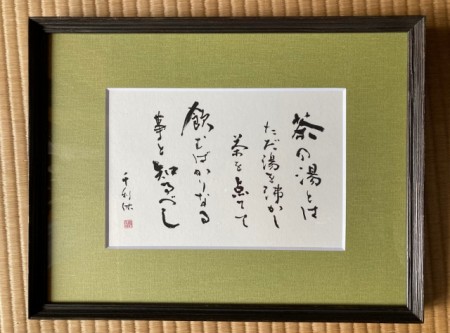 茶の湯とは
ただ湯を沸かし
茶を点てて
飲むばかりなる
事と知るべし
千利休